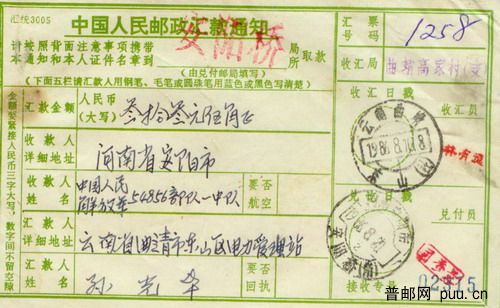 汇统3005
中国人民邮政汇款通知
请按照背面注意事项携带
本通知和本人证件名章到
安阳桥
局所
取款
(由兑付邮局填写)
(下面五栏请汇款人用钢笔、毛笔或圆珠笔用蓝色或黑色写清楚)
汇票号码
1258
收汇局
曲靖高家村(支)
汇款金额
人民币
(大写)
叁拾叁元伍角正
收汇日戳
收汇员
收款人
详细地址
河南省安阳市
云南曲靖
收款人
姓名
中国人民
解放军54856部队一中队
要否
航空
兑讫日戳
兑付员
汇款人
详细地址
云南省曲靖市东山区电力管理站
汇款人
姓名
孙光华
要否
回执
接收专戳
02315
金额要紧接人民币三字大写,数字间不留空隙
普邮网 puu.cn